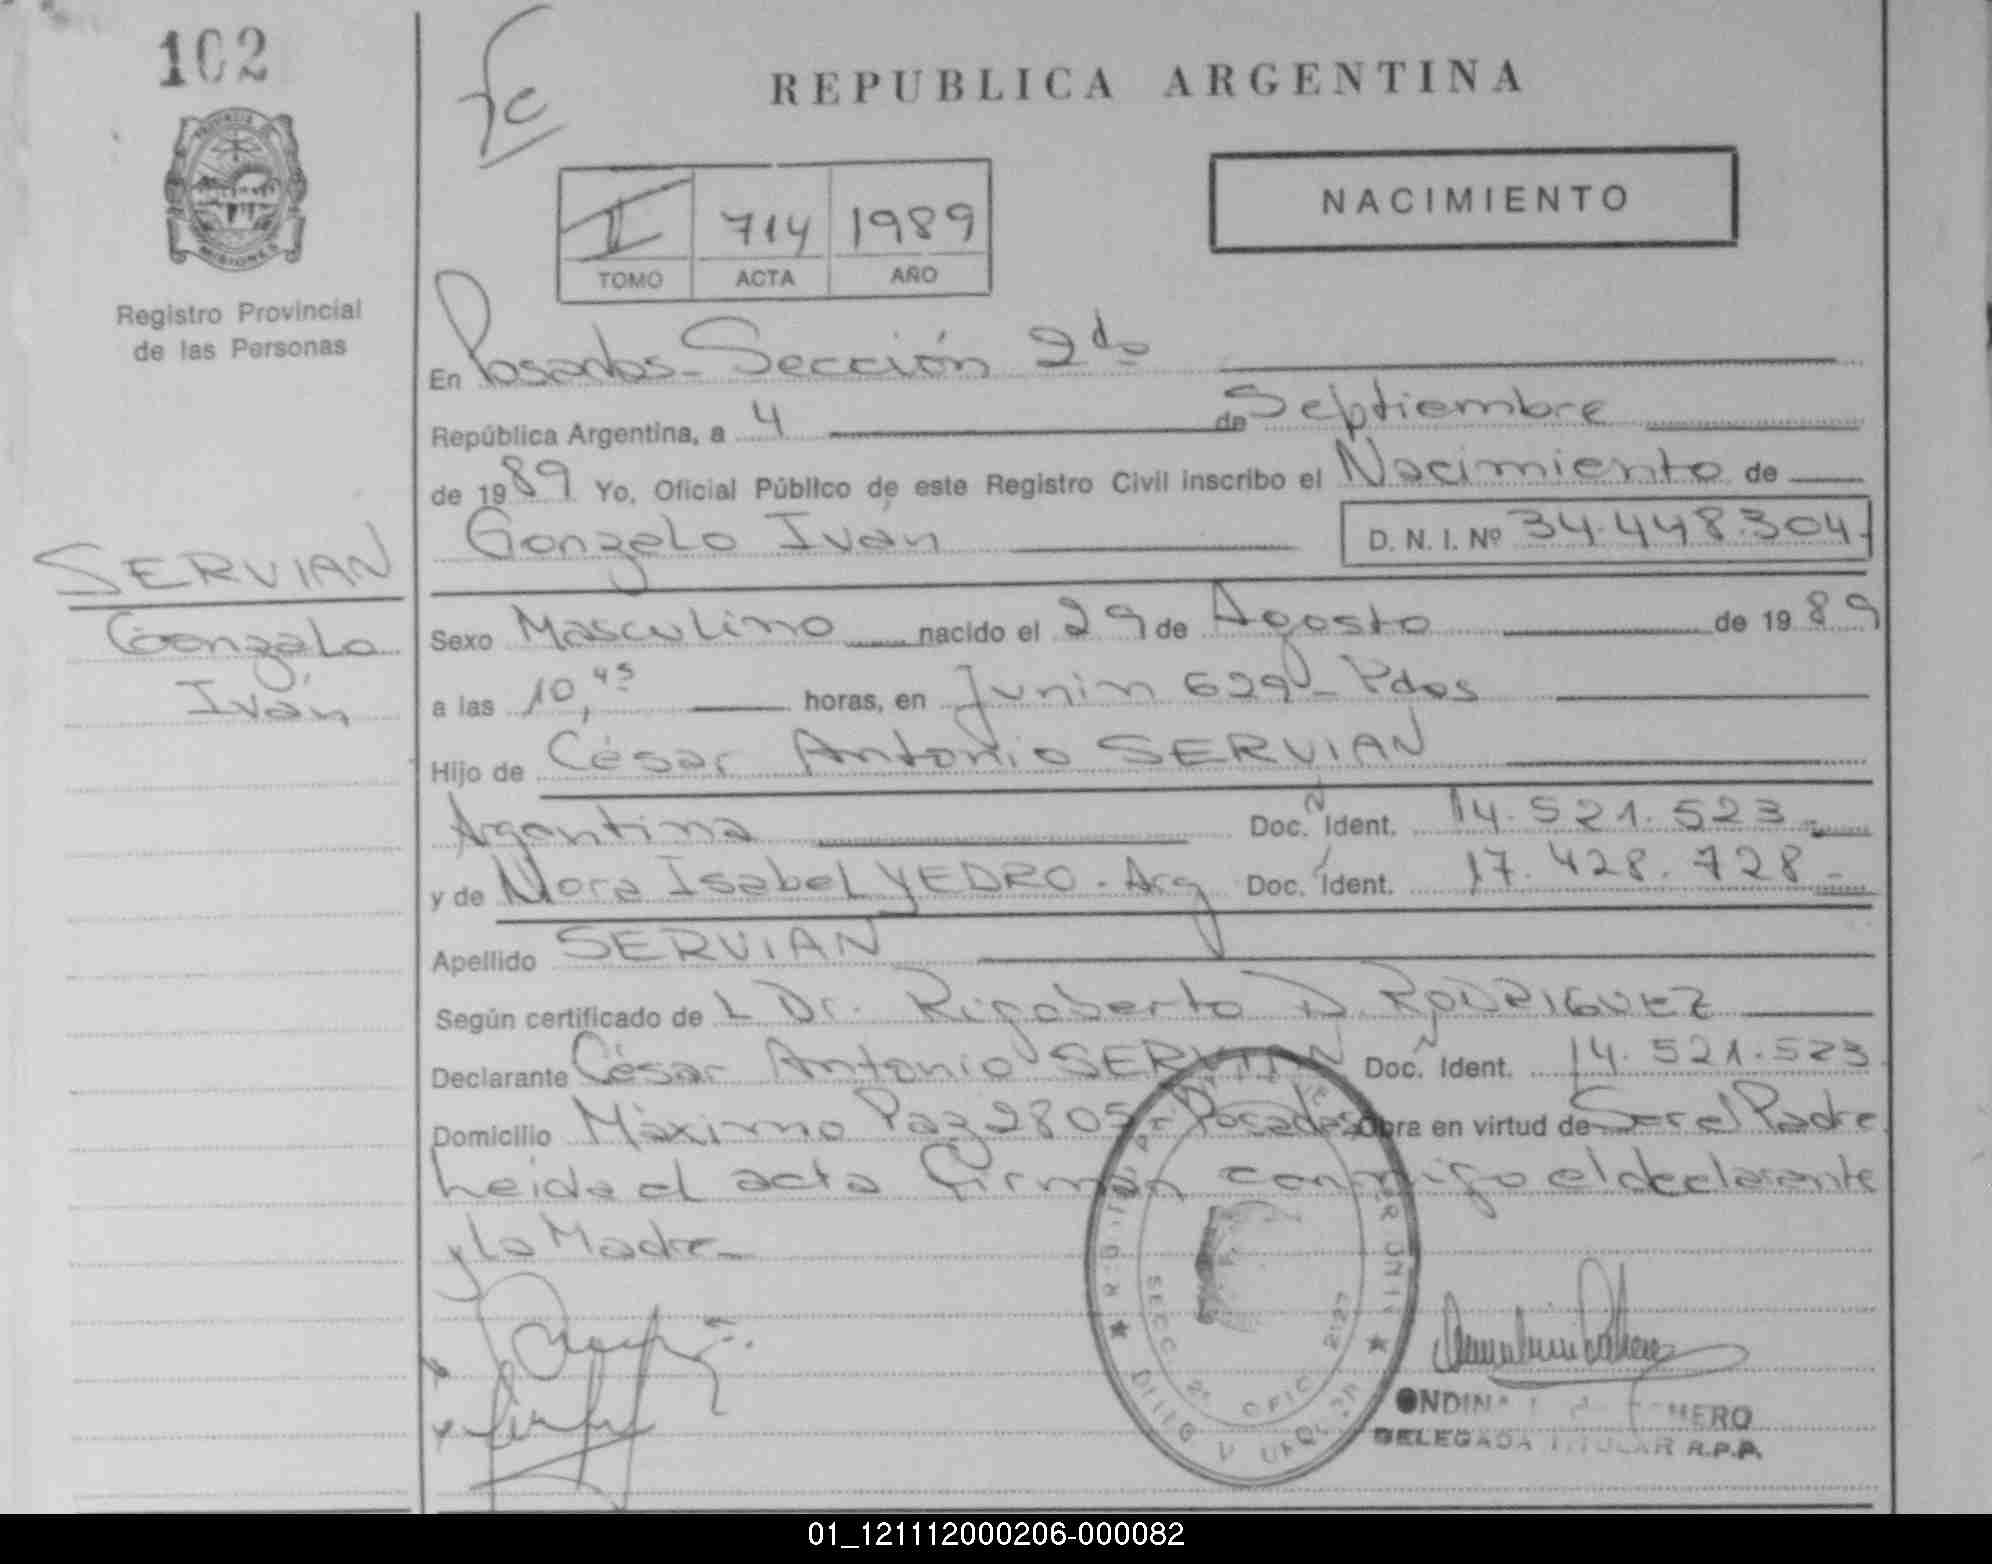 102
REPUBLICA ARGENTINA
NACIMIENTO
II 714 1989
TOMO ACTA AÑO
MISIONES
Registro Provincial
de las Personas
En Posadas - Sección 2da
República Argentina, a 4 de Septiembre
de 1989 Yo, Oficial Público de este Registro Civil inscribo el Nacimiento de
Gonzalo Iván D. N. I. Nº 34.448.304
SERVIAN
Gonzalo
Iván
Sexo Masculino nacido el 29 de Agosto de 1989
a las 10,45 horas, en Junin 629 - Pdas
Hijo de César Antonio SERVIAN
Argentina Doc. Ident. 14.521.523.-
y de Nora Isabel YEDRO - Arg Doc. Ident. 17.428.728.-
Apellido SERVIAN
Según certificado de L Dr. Rigoberto D. RODRIGUEZ
Declarante César Antonio SERVIAN Doc. Ident. 14.521.523
Domicilio Máximo Paz 2805 - Posadas Obra en virtud de Ser el Padre
Leida el acta firman conmigo el declarante
y la Madre -
SECC. 2ª OFIC. 2127
DELEGADA TITULAR R.P.P.
01_121112000206-000082